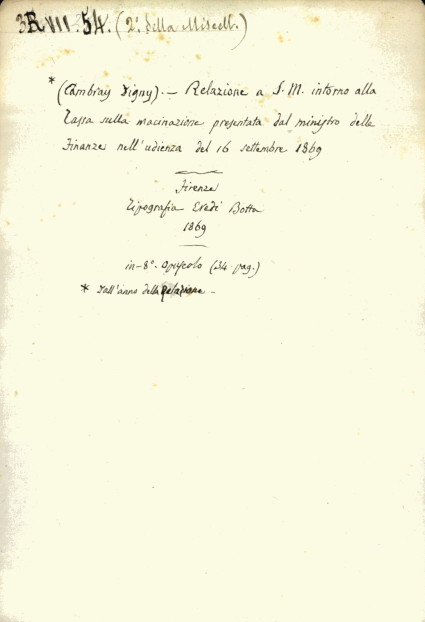 3R VII. 54. (2º. della Miscell.)
* (Cambray Digny). — Relazione a S. M. intorno alla
Tassa sulla macinazione presentata dal ministro delle
Finanze nell'udienza del 16 settembre 1869
Firenze
Tipografia Eredi Botta
1869
in-8º. Opuscolo (34 pag.)
* Dall'anno della Relazione —